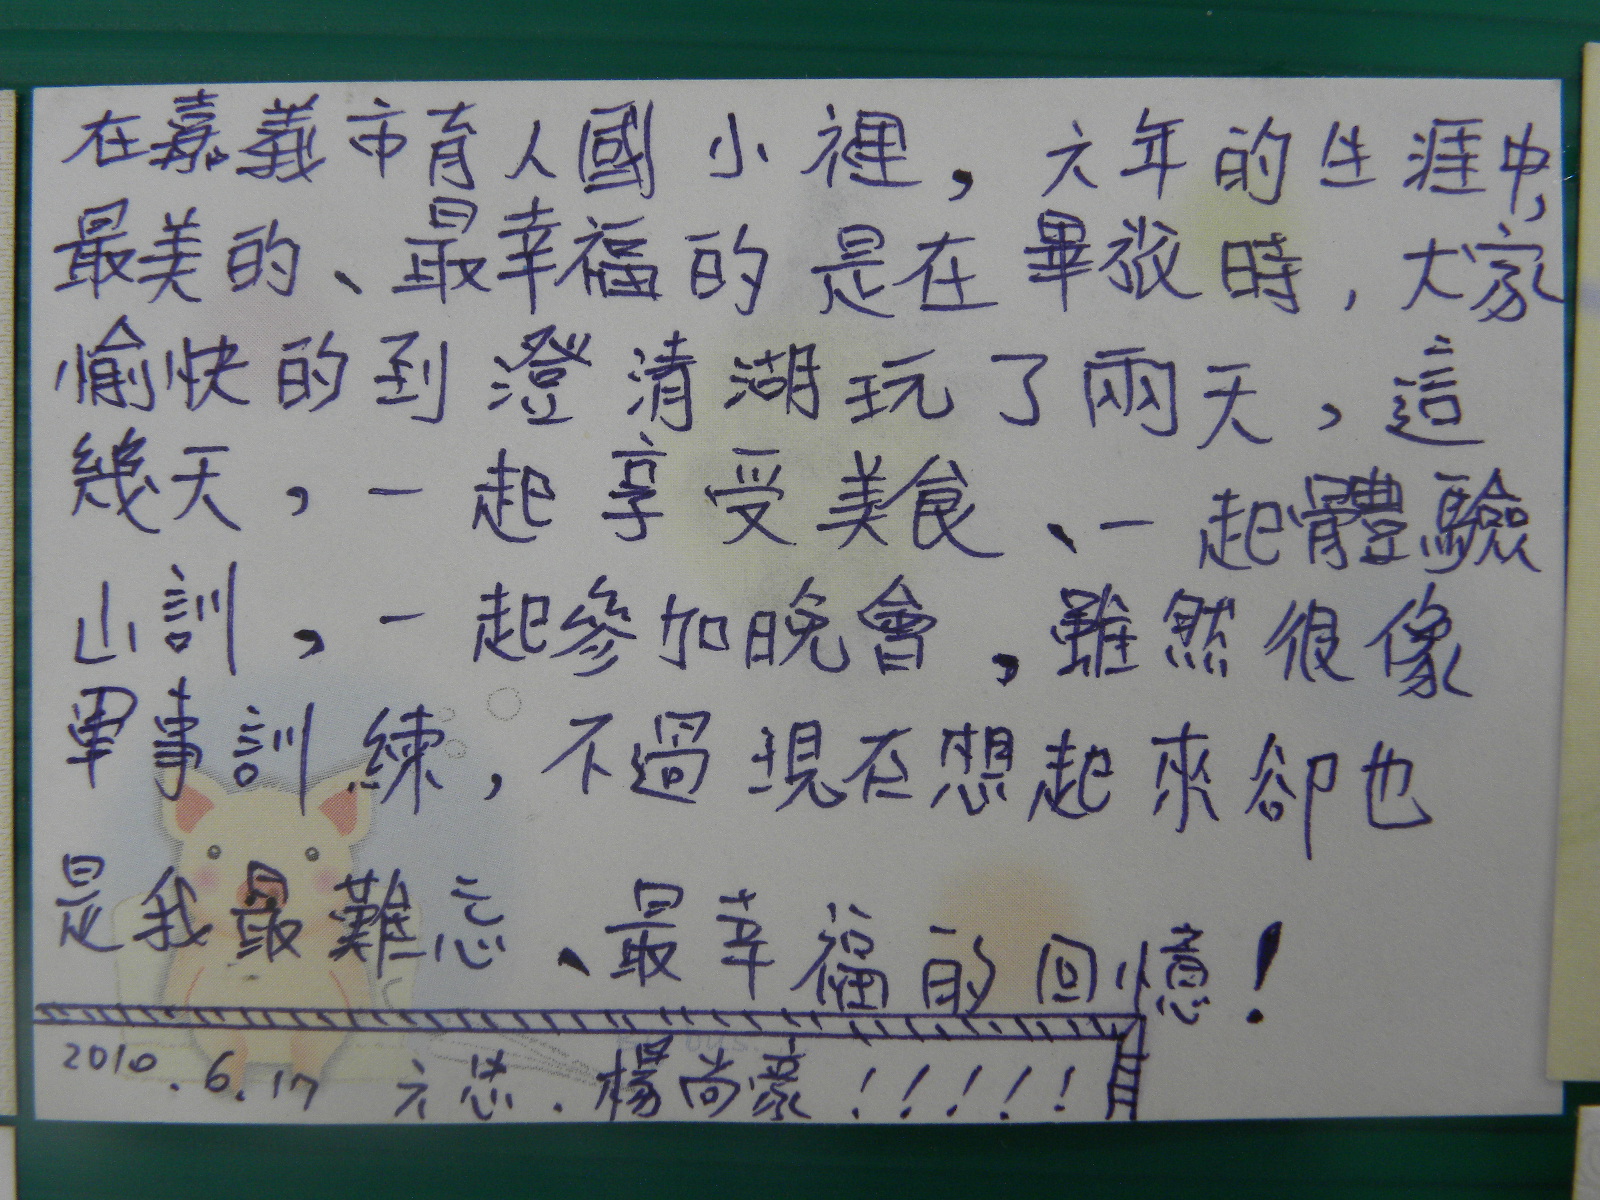 在嘉義市育人國小裡，六年的生涯中，
最美的、最幸福的是在畢旅時，大家
愉快的到澄清湖玩了兩天，這
幾天，一起享受美食、一起體驗
山訓，一起參加晚會，雖然很像
軍事訓練，不過現在想起來卻也
是我最難忘、最幸福的回憶！
2010.6.17 六慈．楊尚豪！！！！！